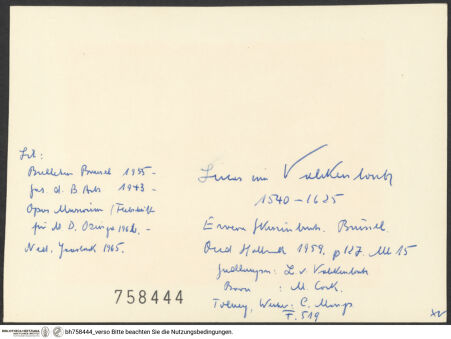 Lit:
Bulletin Brussel 1955 -
Gaz. d. B Arts 1943 -
Opus Musivum / Festschrift
für M D. Ozinga 1964 -
Ned. Jaarboek 1965.
Lucas van Valkenborch
1540-1625
Brüssel.
Oud Holland 1959, p 127. Abb 15
L. v Valkenborch
: M. Cock.
Tolnay, C. Massys
F. 519
758444
BIBLIOTHECA HERTZIANA bh758444_verso Bitte beachten Sie die Nutzungsbedingungen.